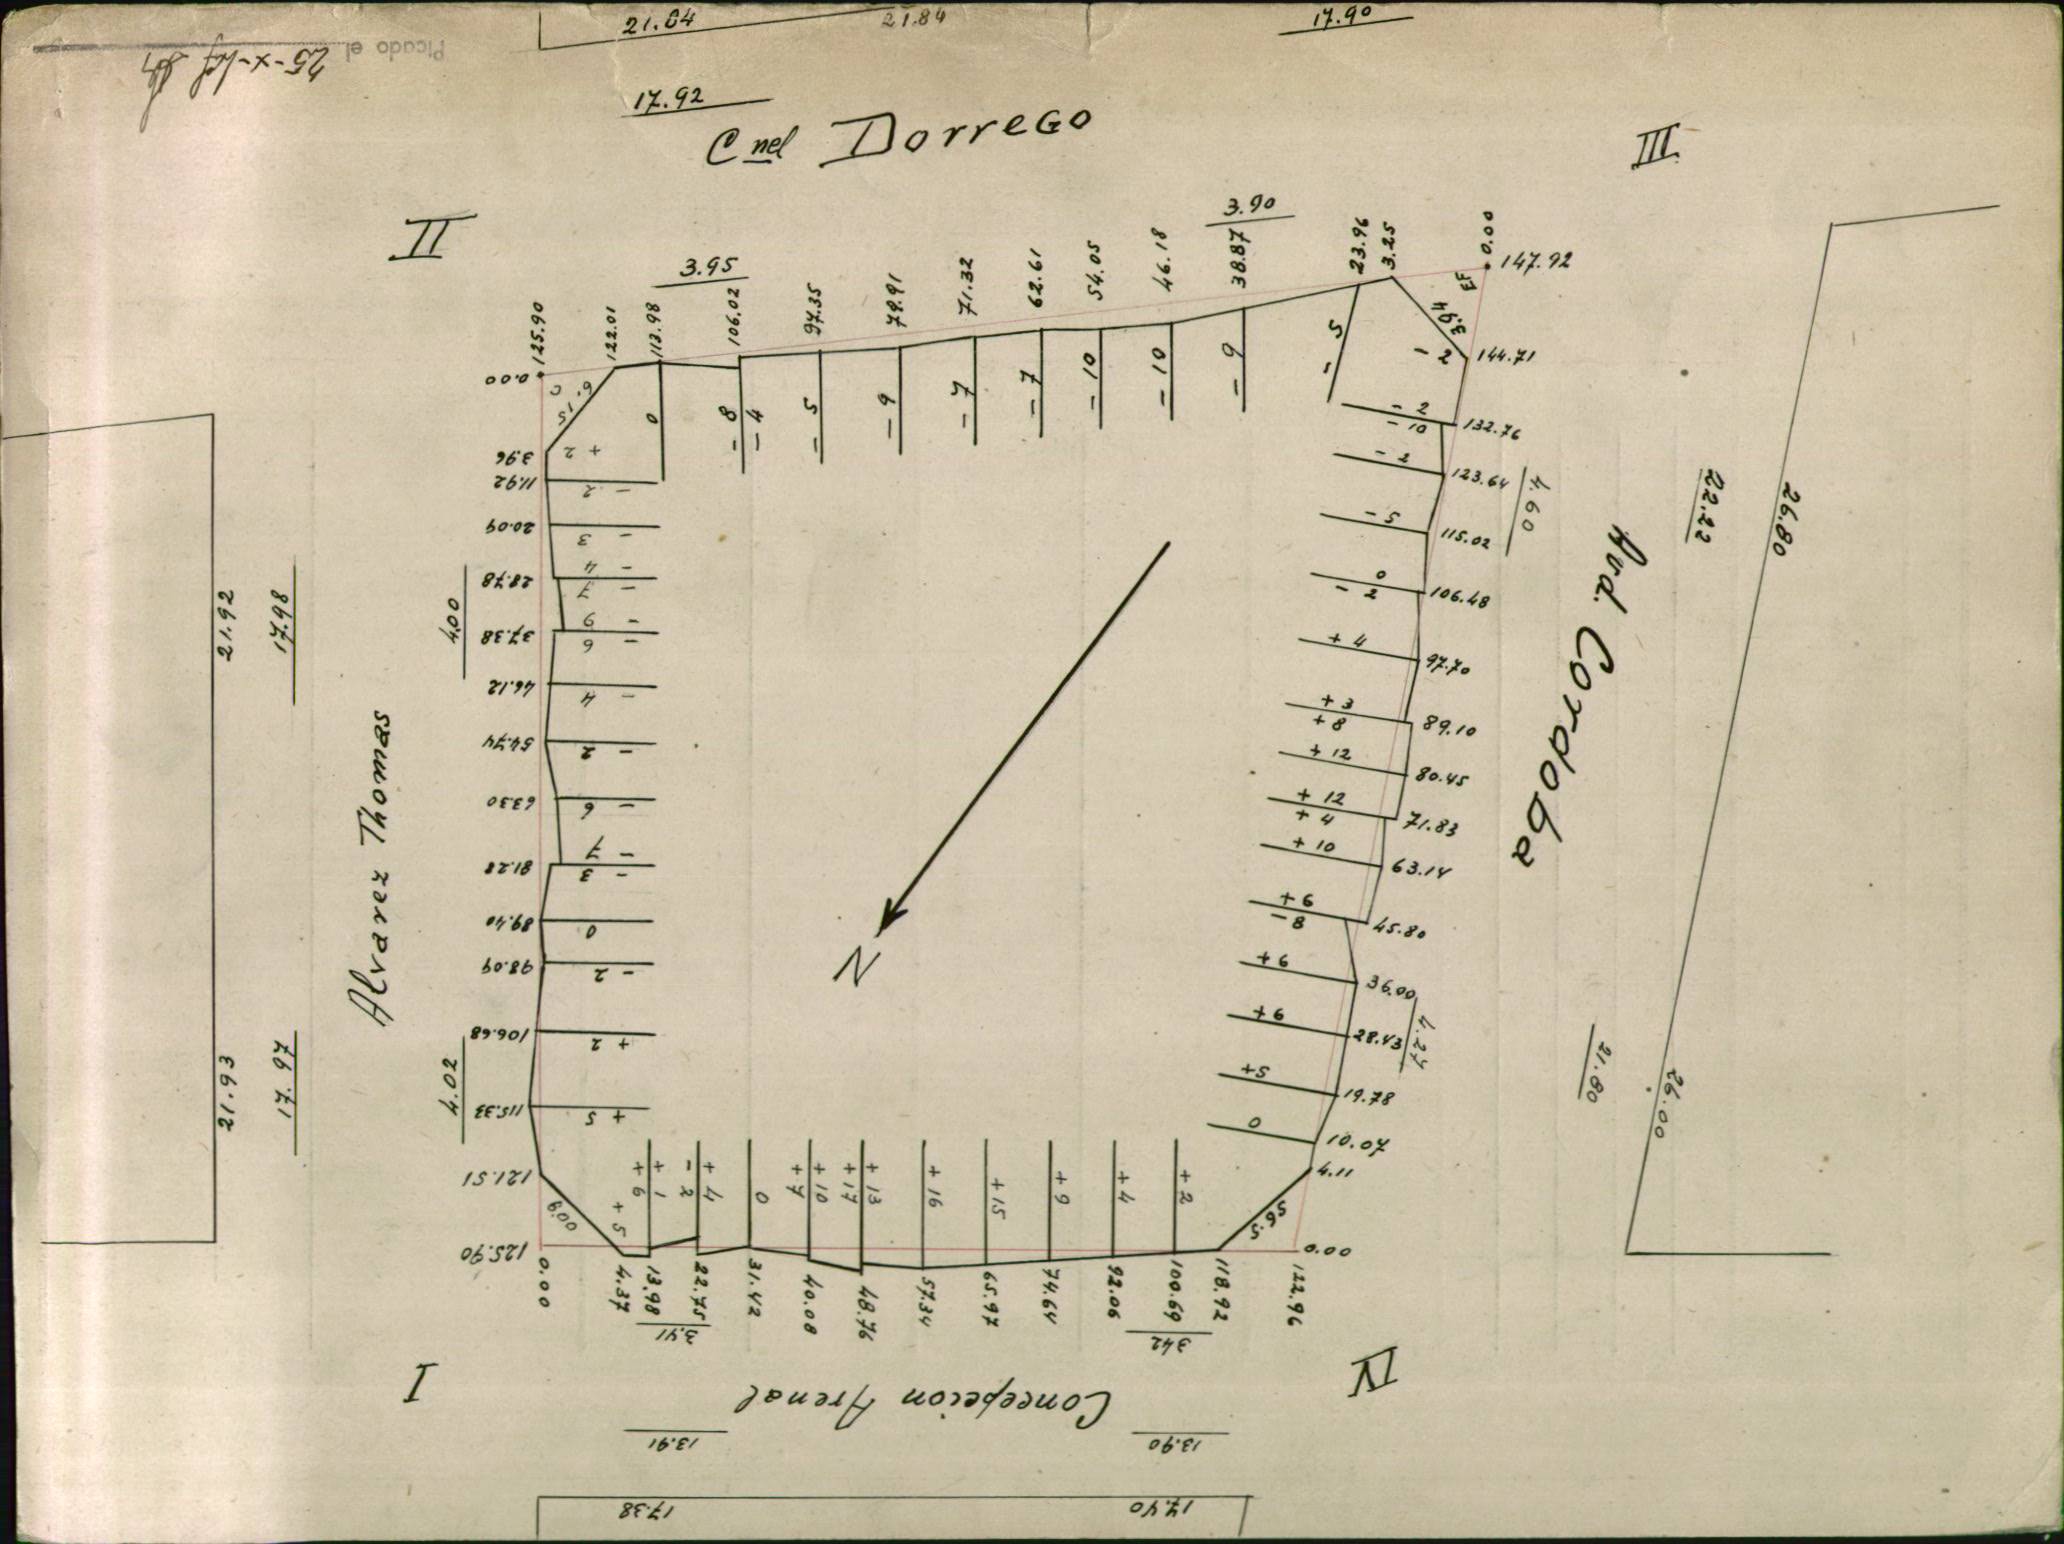 21.84
21.84
17.90
Picado el
25-x-
17.92
Cnel Dorrego
II
III
3.95
3.90
125.90
122.01
113.98
106.02
97.35
79.91
71.32
62.61
54.05
46.18
38.87
23.96
3.25
0.00
147.92
0.00
6.15
C
EF
3.94
0
- 8
- 4
- 5
- 9
- 7
- 7
- 10
- 10
- 9
- 5
- 2
3.96
+ 2
11.92
- 2
20.09
- 3
28.78
- 4
- 7
37.38
- 9
- 6
46.12
- 4
54.74
- 2
63.30
- 6
81.28
- 7
- 3
89.40
0
98.09
- 2
106.68
+ 2
115.33
+ 5
121.51
6.00
125.90
4.00
4.02
Alvarez Thomas
21.92
17.98
21.93
17.97
144.71
- 2
- 10
132.76
- 2
123.64
- 5
115.02
0
- 2
106.48
+ 4
97.70
+ 3
+ 8
89.10
+ 12
80.45
+ 12
+ 4
71.83
+ 10
63.14
+ 6
- 8
45.80
+ 6
36.00
+ 9
28.43
+ 5
19.78
0
10.07
4.11
5.95
0.00
4.60
4.27
Avd. Cordoba
22.22
26.80
21.80
26.00
N
+ 5
+ 6
+ 1
- 2
+ 4
0
+ 7
+ 10
+ 17
+ 13
+ 16
+ 15
+ 9
+ 4
+ 2
0.00
4.37
13.98
22.75
31.42
40.08
48.76
57.34
65.97
74.64
92.06
100.69
118.92
122.96
3.41
3.42
I
IV
Concepcion Arenal
13.91
13.90
17.38
17.40